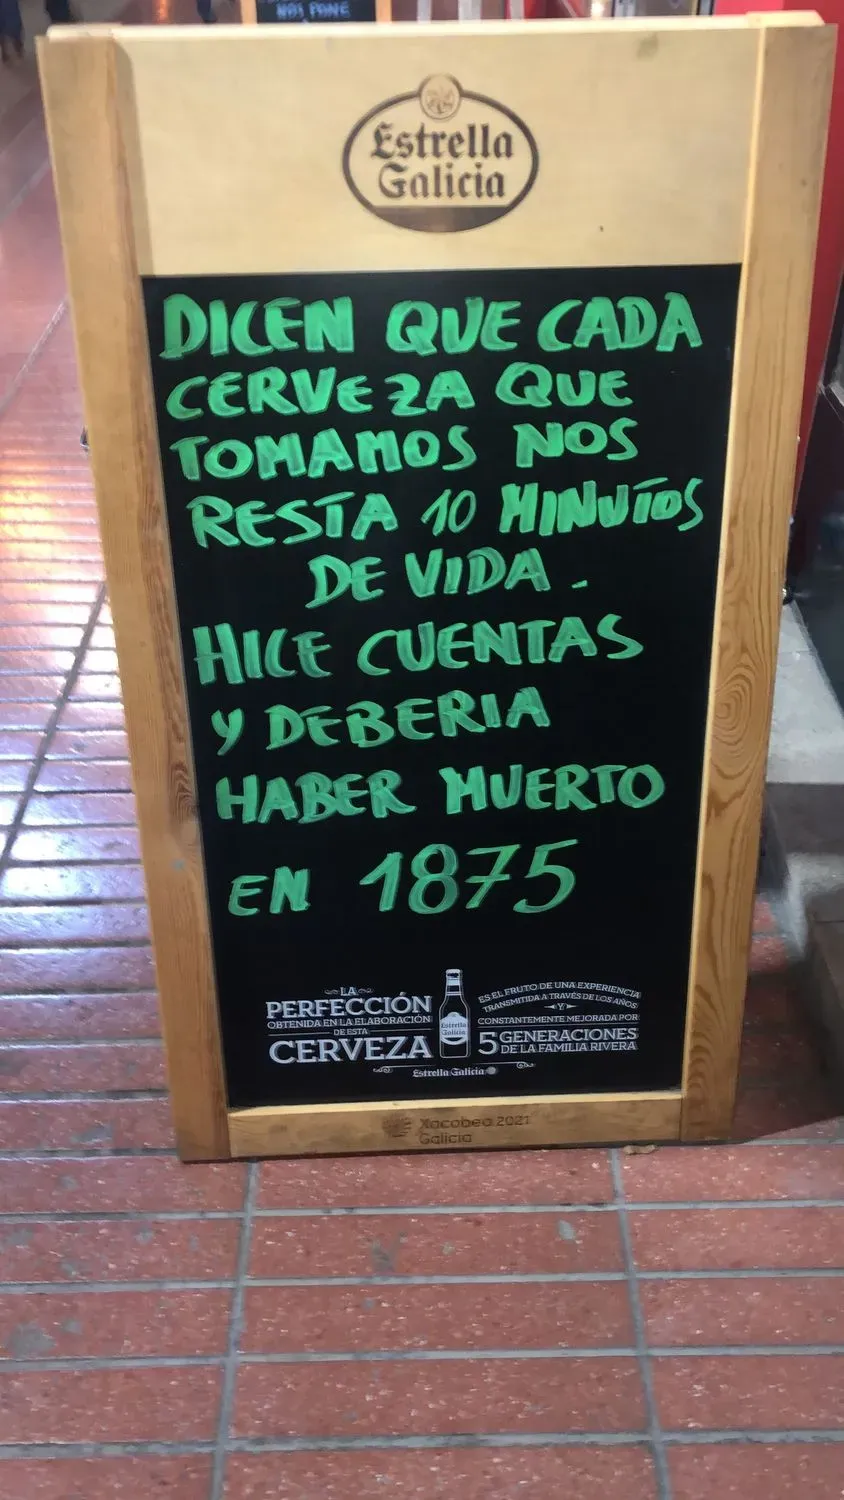 NOS PONE
Estrella
Galicia
DICEN QUE CADA
CERVEZA QUE
TOMAMOS NOS
RESTA 10 MINUTOS
DE VIDA.
HICE CUENTAS
Y DEBERIA
HABER MUERTO
EN 1875
LA
PERFECCIÓN
OBTENIDA EN LA ELABORACIÓN
DE ESTA
CERVEZA
Estrella
Galicia
ES EL FRUTO DE UNA EXPERIENCIA
TRANSMITIDA A TRAVÉS DE LOS AÑOS
Y
CONSTANTEMENTE MEJORADA POR
5 GENERACIONES
DE LA FAMILIA RIVERA
Estrella Galicia
Xacobeo 2021
Galicia